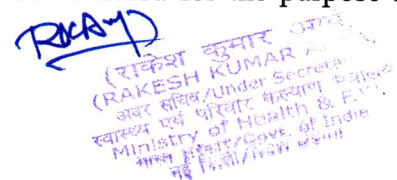 for the purpose
(राकेश कुमार
(RAKESH KUMAR
अवर सचिव/Under Secretar
स्वास्थ्य एवं परिवार कल्याण
Ministry of Health & F.
भारत सरकार/Govt. of India
नई दिल्ली/New Delhi